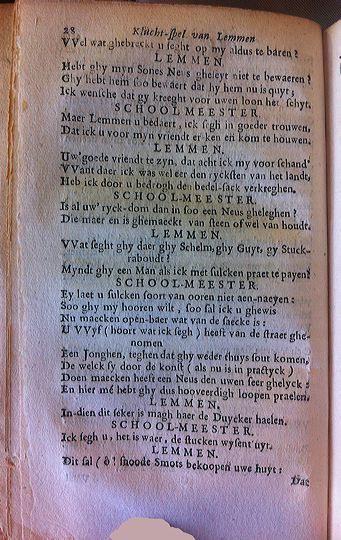 28 Klucht-spel van Lemmen
VVel wat ghebreckt u seght op my aldus te baren?
LEMMEN.
Hebt ghy myn Sones Neus gheleyt niet te bewaeren?
Ghy hebt hem soo bewaert dat hy hem nu is quyt;
Ick wensche dat gy kreeght voor uwen loon het schyt.
SCHOOL-MEESTER.
Maer Lemmen u bedaert, ick segh in goeder trouwen,
Dat ick u voor myn vriendt er ken en kom te houwen.
LEMMEN.
Uw'goede vriendt te zyn, dat acht ick my voor schand'
VVant daer ick was wel eer den rycksten van het lande,
Heb ick door u bedrogh den bedel-sack verkreghen.
SCHOOL-MEESTER.
Is al uw'ryck-dom dan in soo een Neus gheleghen?
Die maer en is ghemaeckt van steen of wel van houdt.
LEMMEN.
VVat seght ghy daer ghy Schelm, ghy Guyt, gy Stuck-
raboudt?
Myndt ghy een Man als ick met sulcken praet te payen?
SCHOOL-MEESTER.
Ey laet u sulcken soort van ooren niet aen-naeyen:
Soo ghy my hooren wilt, soo sal ick u ghewis
Nu maecken open-baer wat van de saecke is:
U VVyf (hoort wat ick segh) heeft van de straet ghe-
nomen
Een Jonghen, teghen dat ghy weder thuys sout komen,
De welck sy door de konst (als nu is in practyck)
Doen maecken heeft een Neus den uwen seer ghelyck:
En hier mé hebt ghy dus hooveerdigh loopen praelen.
LEMMEN.
In-dien dit seker is magh haer de Duycker haelen.
SCHOOL-MEESTER.
Ick segh u, het is waer, de stucken wysent uyt.
LEMMEN.
Dit sal (ô! snoode Smots bekoopen uwe huyt: